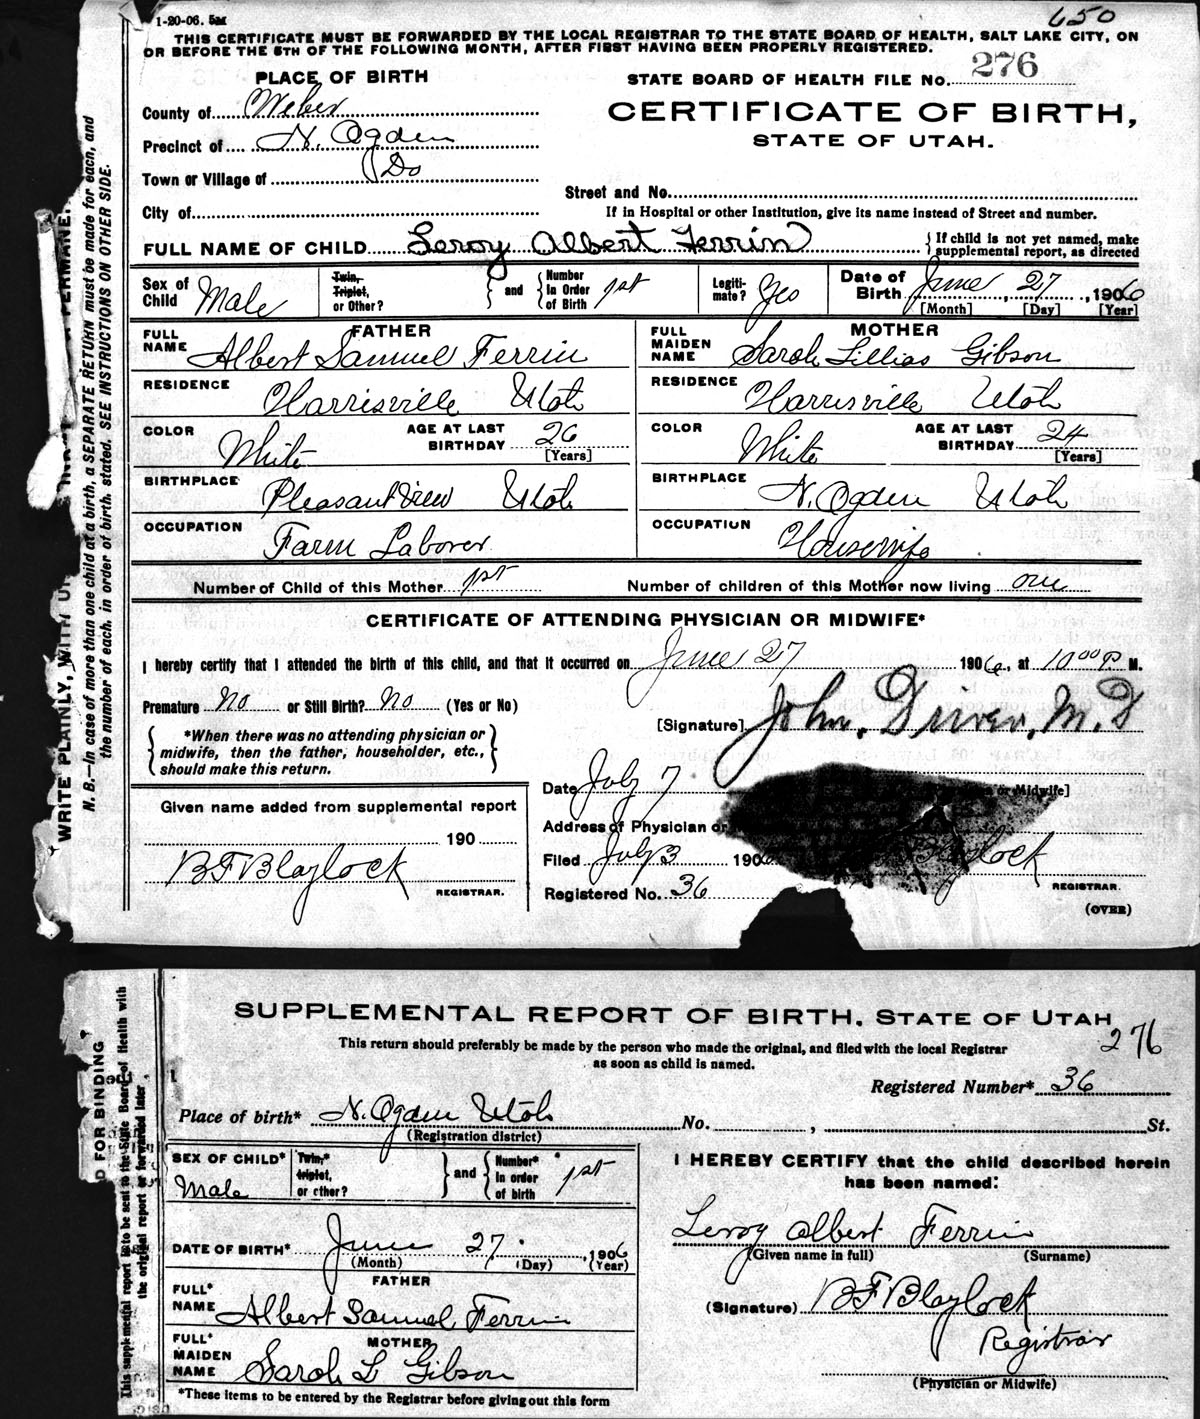 1-20-06. 5M
650
THIS CERTIFICATE MUST BE FORWARDED BY THE LOCAL REGISTRAR TO THE STATE BOARD OF HEALTH, SALT LAKE CITY, ON
OR BEFORE THE 5TH OF THE FOLLOWING MONTH, AFTER FIRST HAVING BEEN PROPERLY REGISTERED.
PLACE OF BIRTH
STATE BOARD OF HEALTH FILE No. 276
County of Weber
CERTIFICATE OF BIRTH,
STATE OF UTAH.
Precinct of N. Ogden
Town or Village of Do
Street and No.
City of
If in Hospital or other Institution, give its name instead of Street and number.
FULL NAME OF CHILD Leroy Albert Ferrin { If child is not yet named, make supplemental report, as directed
Sex of Child Male
Twin, Triplet, or Other? } and { Number in Order of Birth 1st
Legitimate? Yes
Date of Birth June 27, 1906
[Month] [Day] [Year]
FATHER
FULL NAME Albert Samuel Ferrin
MOTHER
FULL MAIDEN NAME Sarah Lillias Gibson
RESIDENCE Harrisville Utah
RESIDENCE Harrisville Utah
COLOR White AGE AT LAST BIRTHDAY 26 [Years]
COLOR White AGE AT LAST BIRTHDAY 24 [Years]
BIRTHPLACE Pleasant View Utah
BIRTHPLACE N. Ogden Utah
OCCUPATION Farm Laborer
OCCUPATION Housewife
Number of Child of this Mother 1st Number of children of this Mother now living one
CERTIFICATE OF ATTENDING PHYSICIAN OR MIDWIFE*
I hereby certify that I attended the birth of this child, and that it occurred on June 27 1906, at 10 00 P M.
Premature No or Still Birth? No (Yes or No)
[Signature] John Driver, M.D
{ *When there was no attending physician or
midwife, then the father, householder, etc.,
should make this return. }
Date July 7 or Midwife]
Given name added from supplemental report
Address of Physician or
190
Filed July 3 190 Blaylock
BF Blaylock
REGISTRAR.
REGISTRAR.
Registered No. 36
(OVER)
WRITE PLAINLY, WITH PERMANE
N. B.—In case of more than one child at a birth, a SEPARATE RETURN must be made for each, and
the number of each, in order of birth, stated. SEE INSTRUCTIONS ON OTHER SIDE.
SUPPLEMENTAL REPORT OF BIRTH, STATE OF UTAH
276
This return should preferably be made by the person who made the original, and filed with the local Registrar
as soon as child is named.
Registered Number* 36
Place of birth* N. Ogden Utah No. , St.
(Registration district)
SEX OF CHILD* Male
Twin,* triplet, or other? } and { Number* in order of birth 1st
I HEREBY CERTIFY that the child described herein
has been named:
Leroy Albert Ferrin
(Given name in full) (Surname)
DATE OF BIRTH* June 27, 1906
(Month) (Day) (Year)
FATHER
FULL* NAME Albert Samuel Ferrin
(Signature) BF Blaylock
Registrar
MOTHER
FULL* MAIDEN NAME Sarah L Gibson
(Physician or Midwife)
*These items to be entered by the Registrar before giving out this form
D FOR BINDING
This supplemental report is to be sent to the State Board of Health with
the original report or forwarded later